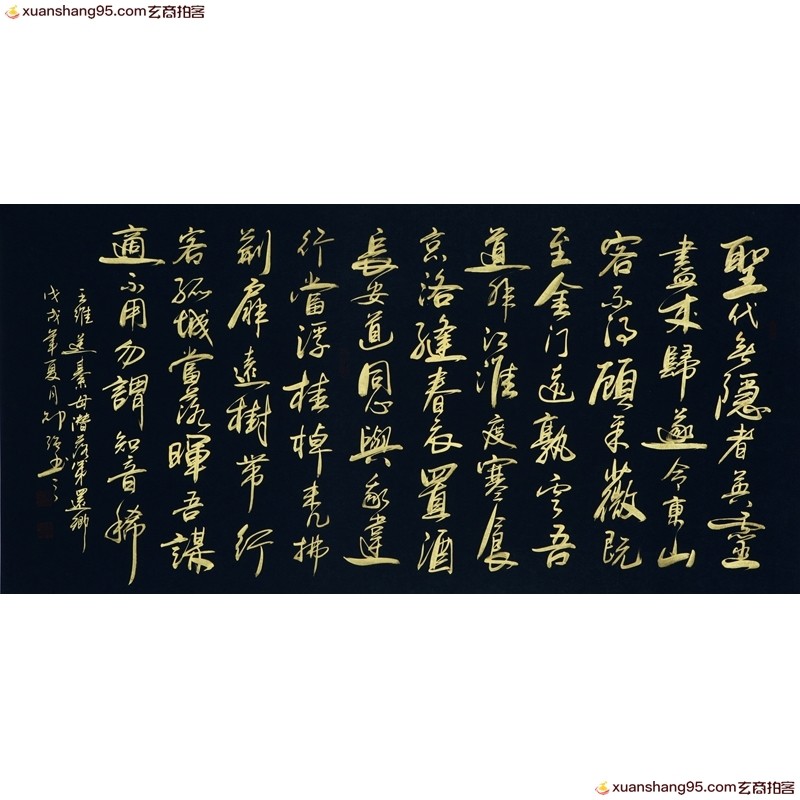 xuanshang95.com玄商拍客
xuanshang95.com玄商拍客
聖代無隱者英靈
盡来歸遂令東山
客不得顧采薇既
至金门遠孰云吾
道非江淮度寒食
京洛縫春衣置酒
長安道同心與我違
行當浮桂棹未几拂
荆扉遠樹带行
客孤城當落暉吾謀
適不用勿謂知音稀
王維送綦毋潜落第還鄉
戊戌年夏月
xuanshang95.com玄商拍客